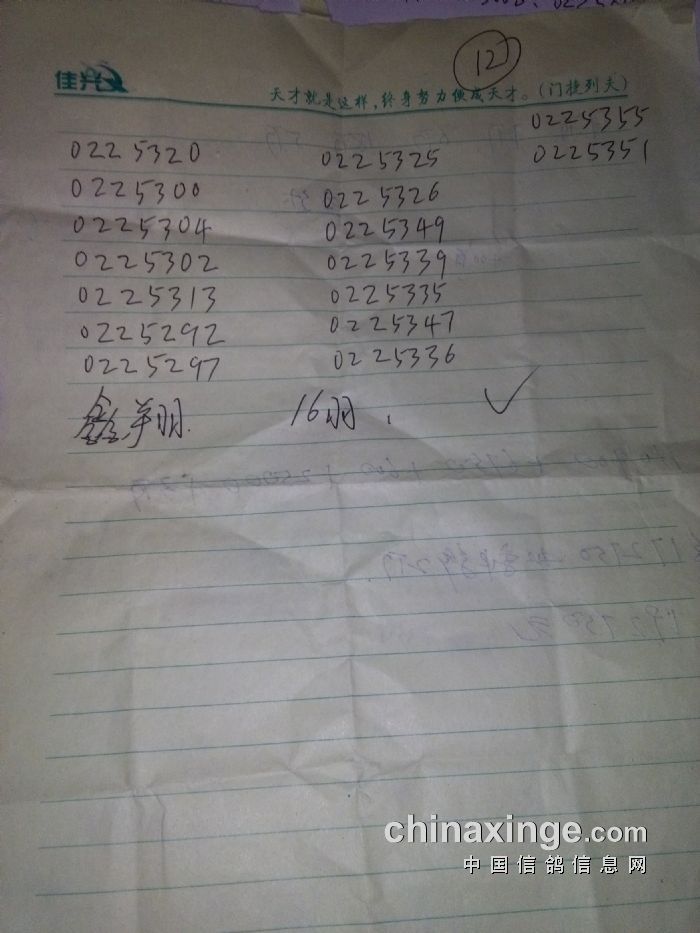 12
佳兴
天才就是这样，终身努力便成天才。(门捷列夫)
0225355
0225320 0225325 0225351
0225300 0225326
0225304 0225349
0225302 0225339
0225313 0225335
0225292 0225347
0225297 0225336
鑫羊羽. 16羽.
chinaxinge.com
中国信鸽信息网